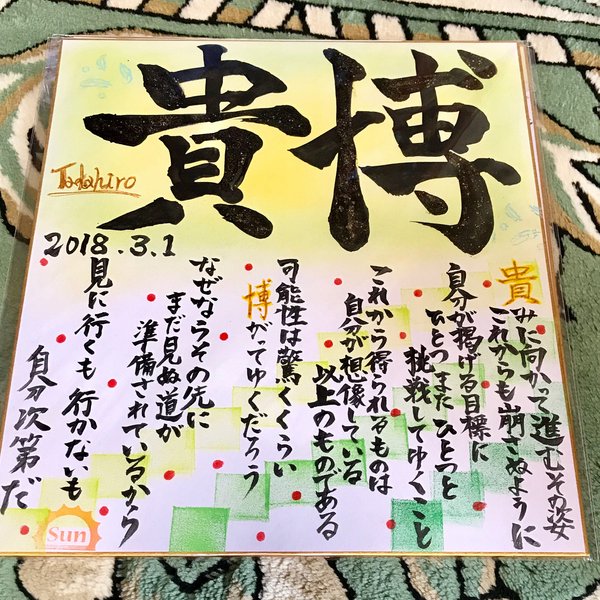 貴博
Tadahiro
2018.3.1
貴みに向かて進むその姿
これからも崩さぬように
自分が掲げる目標に
ひとつまたひとつと
挑戦してゆくこと
これから得られるものは
自分が想像している
以上のものである
可能性は驚くくらい
博がってゆくだろう
なぜならその先に
まだ見ぬ道が
準備されているから
見に行くも行かないも
自分次第だ
Sun